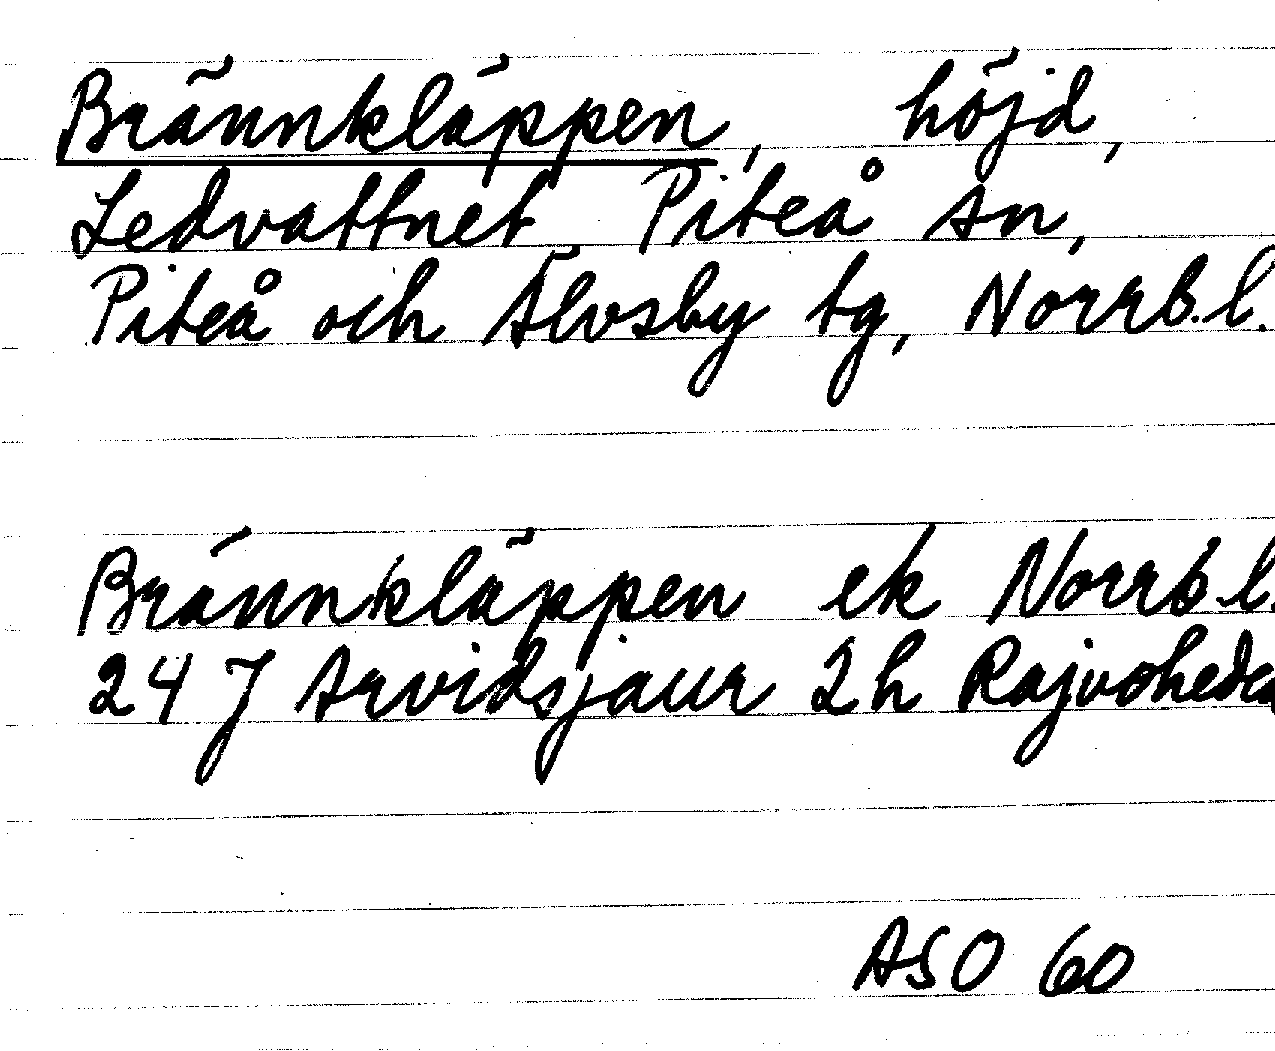 Brännkläppen, höjd,
Ledvattnet, Piteå sn,
Piteå och Älvsby tg, Norrb.l.
Brännkläppen ek Norrb.l.
24 J Arvidsjaur 2h Rajvoheden
ASO 60